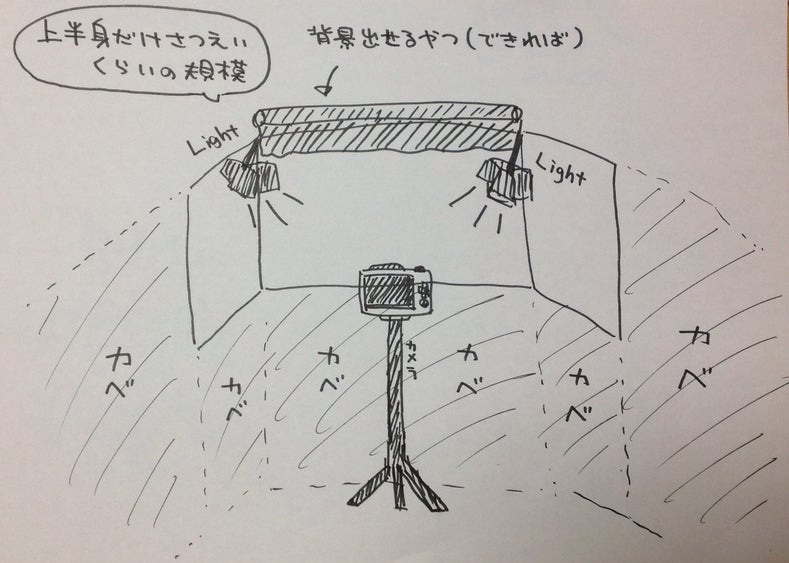 上半身だけさつえい
くらいの規模
背景出せるやつ(できれば)
Light
Light
カメラ
カベ
カベ
カベ
カベ
カベ
カベ